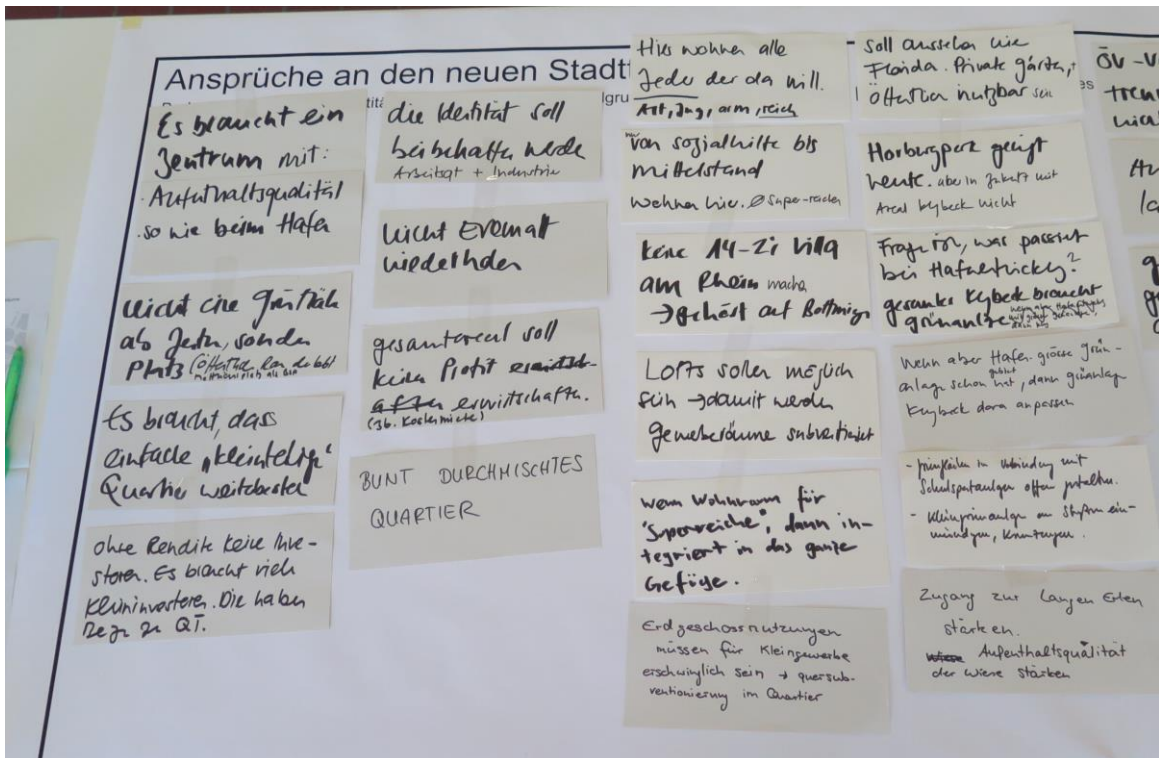 Ansprüche an den neuen Stadtt
Es braucht ein
Zentrum mit:
- Aufenthaltsqualität
so wie beim Hafen
nicht eine Grünfläche
als Zentr, sondern
Platz
Es braucht, dass
einfache „kleinteilige"
Quartier weiterbesteht
ohne Rendite keine Inve-
storen. Es braucht viele
Kleininvestoren. Die haben
Bezg zu QT.
die Identität soll
beibehalten werde
Arbeiterqt + Industrie
nicht Erlenmatt
wiederholen
gesamtareal soll
keinen Profit
erwirtschaften.
(zb. Kostenmiete)
BUNT DURCHMISCHTES
QUARTIER
Hier wohnen alle
Jeder der da will.
Alt, Jung, arm, reich
von sozialhilfe bis
mittelstand
wohnen hier. Ø Super-reichen
keine 14-Zi Villa
am Rhein machen
→ gehört auf Bottmigen
LOFTS sollen möglich
sein → damit werden
Gewerberäume subventioniert
wenn Wohnraum für
"Superreiche", dann in-
tegriert in das ganze
Gefüge.
Erdgeschossnutzungen
müssen für Kleingewerbe
erschwinglich sein → quersub-
ventionierung im Quartier
soll aussehen wie
Florida. Private gärten,
öffentlich nutzbar sein
Horburgpark genügt
heute. aber in Zukunft mit
Areal klybeck nicht
Frage ist, was passiert
bei Hafenentwicklg?
gesamtes Klybeck braucht
grünanlage
Wenn aber Hafen grosse Grün-
anlage schon hat, dann grünanlage
Klybeck daran anpassen
- grünflächen in Verbindung mit
Schulsportanlagen offen gestalten.
Zugang zur Langen Erlen
stärken.
Aufenthaltsqualität
der Wiese stärken
ÖV-V